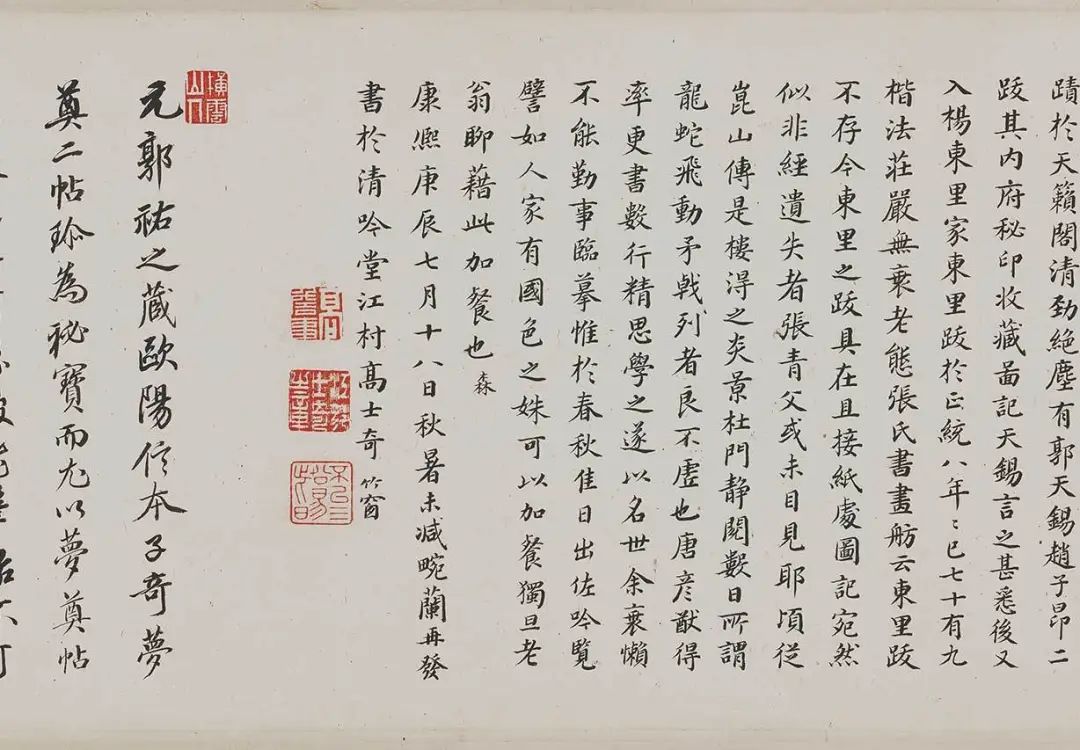 蹟於天籟閣清勁絕塵有郭天錫趙子昂二
跋其内府秘印收藏啚記天錫言之甚悉後又
入楊東里家東里跋於正統八年〻已七十有九
楷法莊嚴無衰老態張氏書畫舫云東里跋
不存今東里之跋具在且接紙處圖記宛然
似非經遺失者張青父或未目見耶頃從
崑山傳是樓得之炎景杜門静閱數日所謂
龍蛇飛動矛戟列者良不虛也唐彦猷得
率更書數行精思學之遂以名世余衰懶
不能勤事臨摹惟於春秋佳日出佐吟覽
譬如人家有國色之姝可以加餐獨旦老
翁聊藉此加餐也 森
康熙庚辰七月十八日秋暑未减畹蘭再發
書於清吟堂江村高士奇 竹窗
橫雲山人
元郭祐之藏歐陽信本子奇夢
奠二帖珎為秘寶而尤以夢奠帖